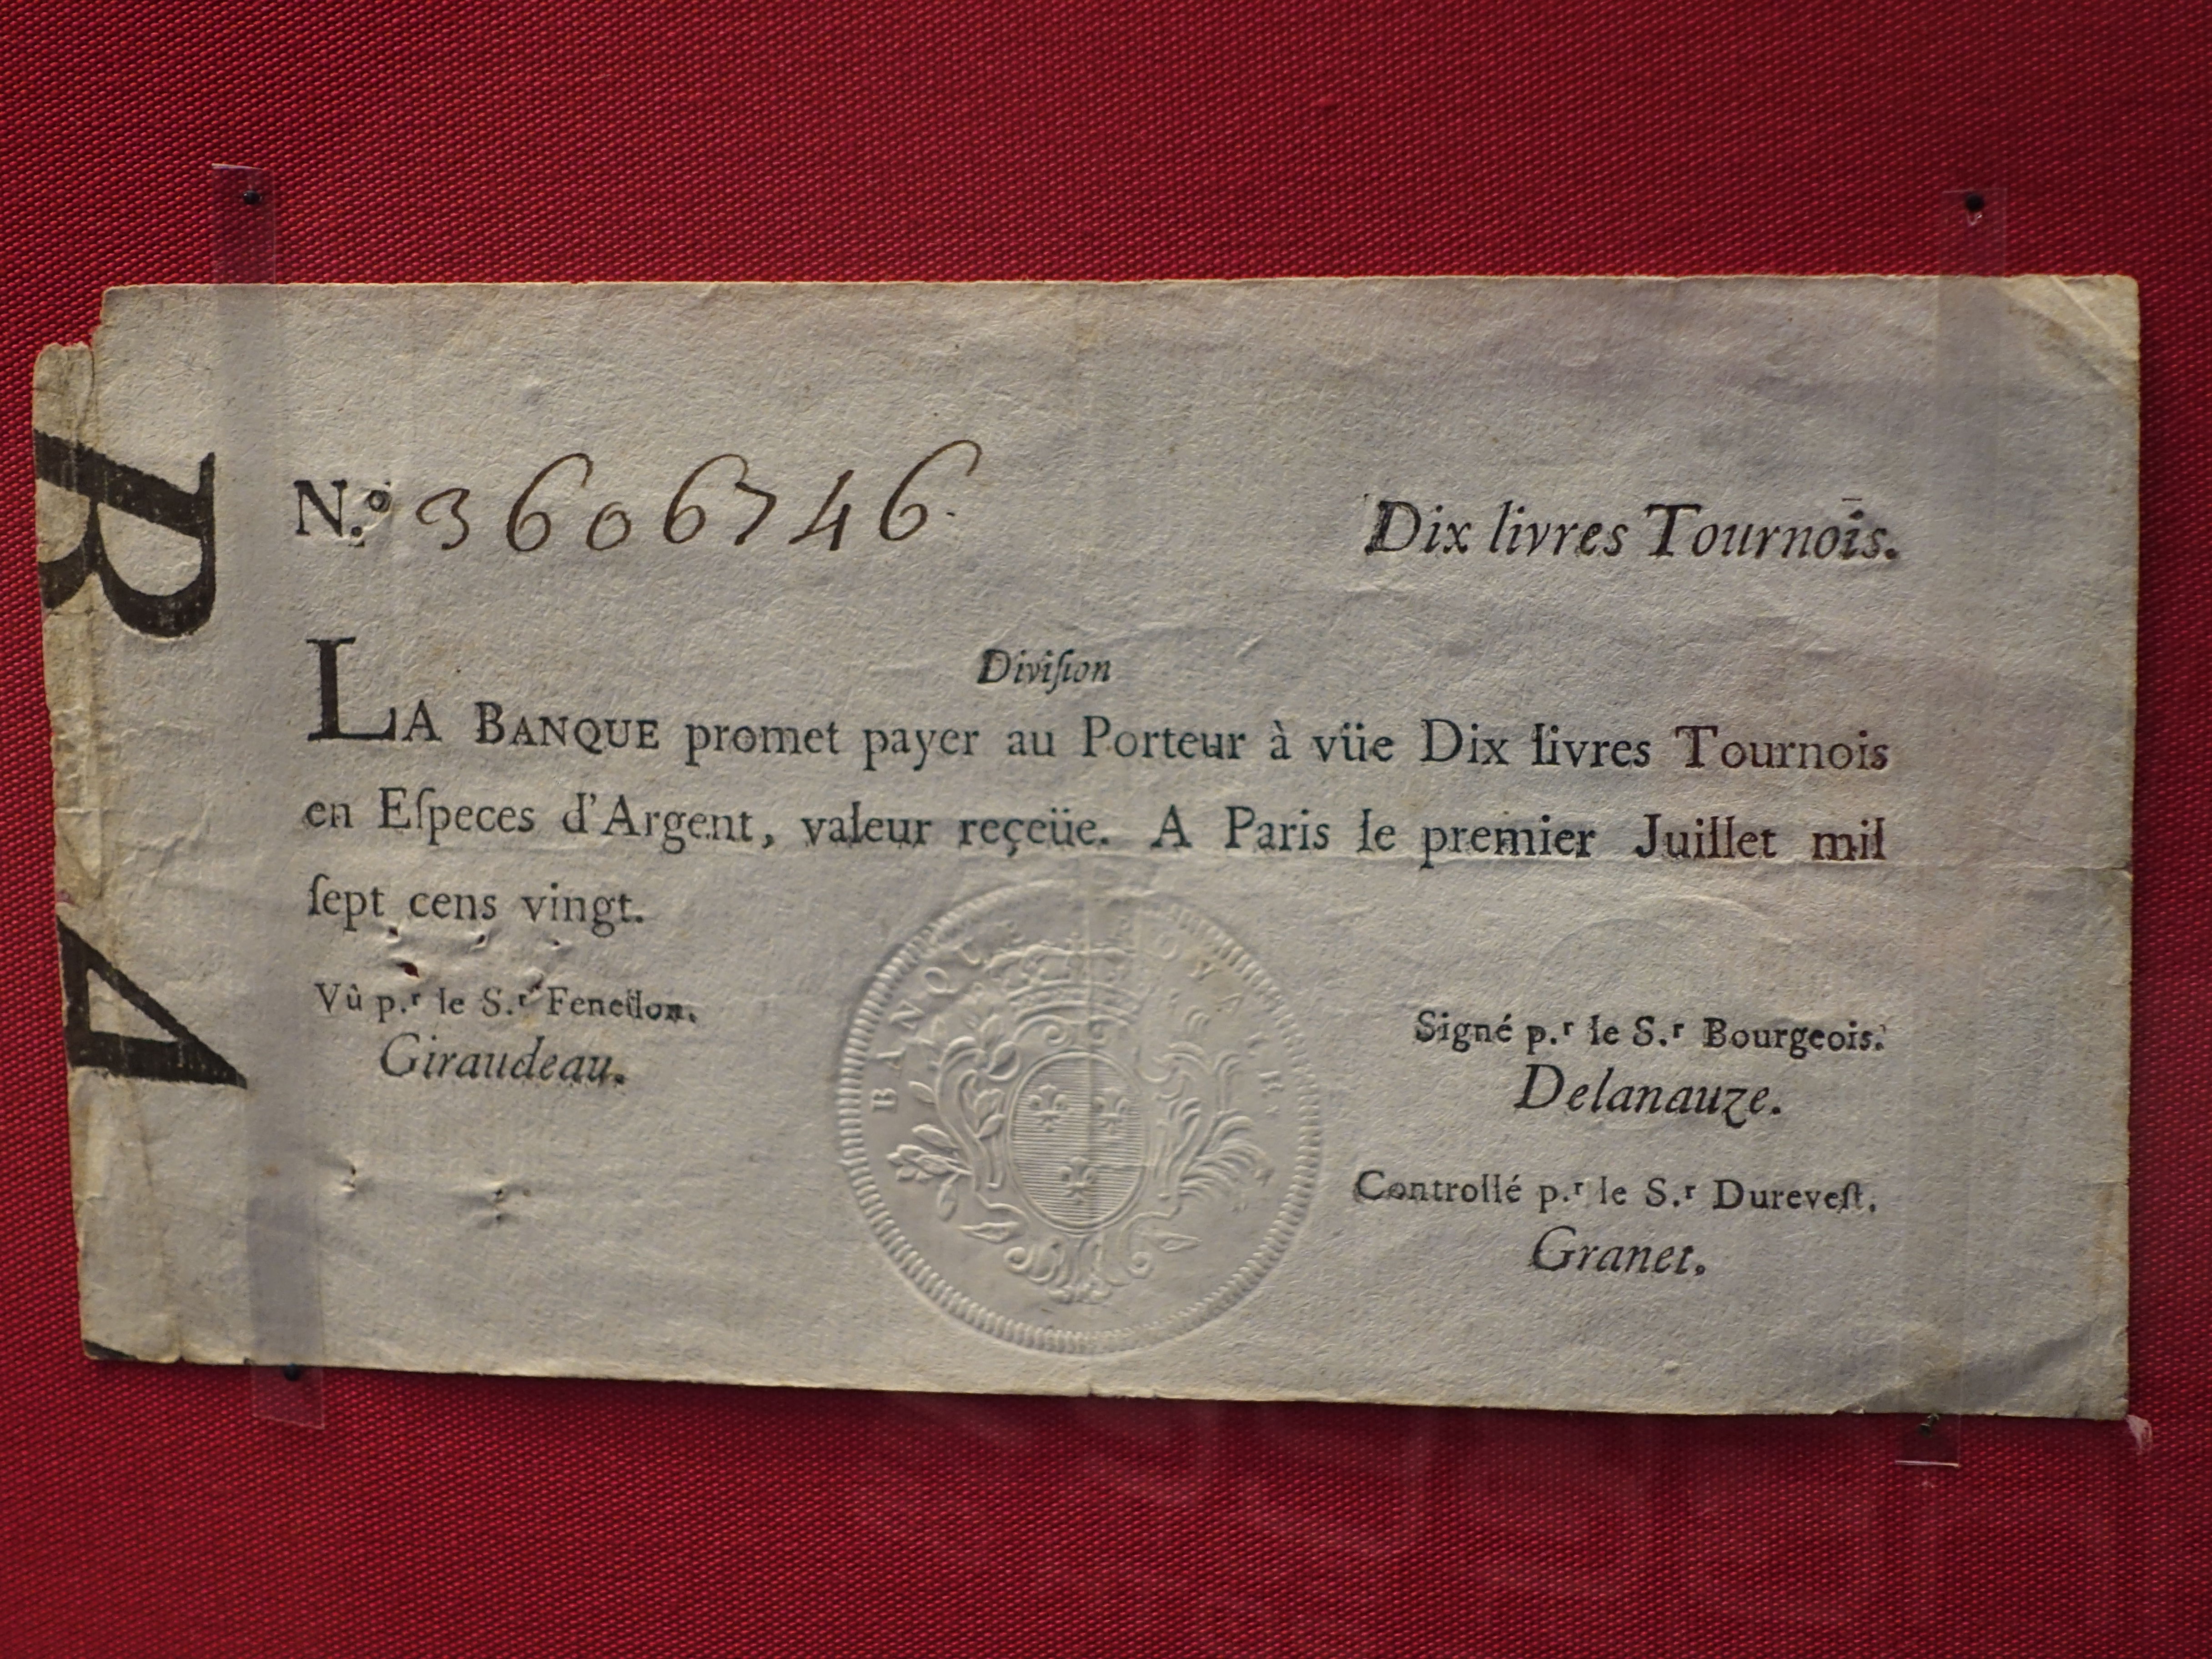 N.º 3606746.
Dix livres Tournois.
Diviſion
LA BANQUE promet payer au Porteur à vüe Dix livres Tournois
en Eſpeces d'Argent, valeur reçeüe. A Paris le premier Juillet mil
ſept cens vingt.
Vû p.r le S.r Fenellon.
Giraudeau.
Signé p.r le S.r Bourgeois.
Delanauze.
Controllé p.r le S.r Dureveſt.
Granet.
BANQUE ROYALE
BA